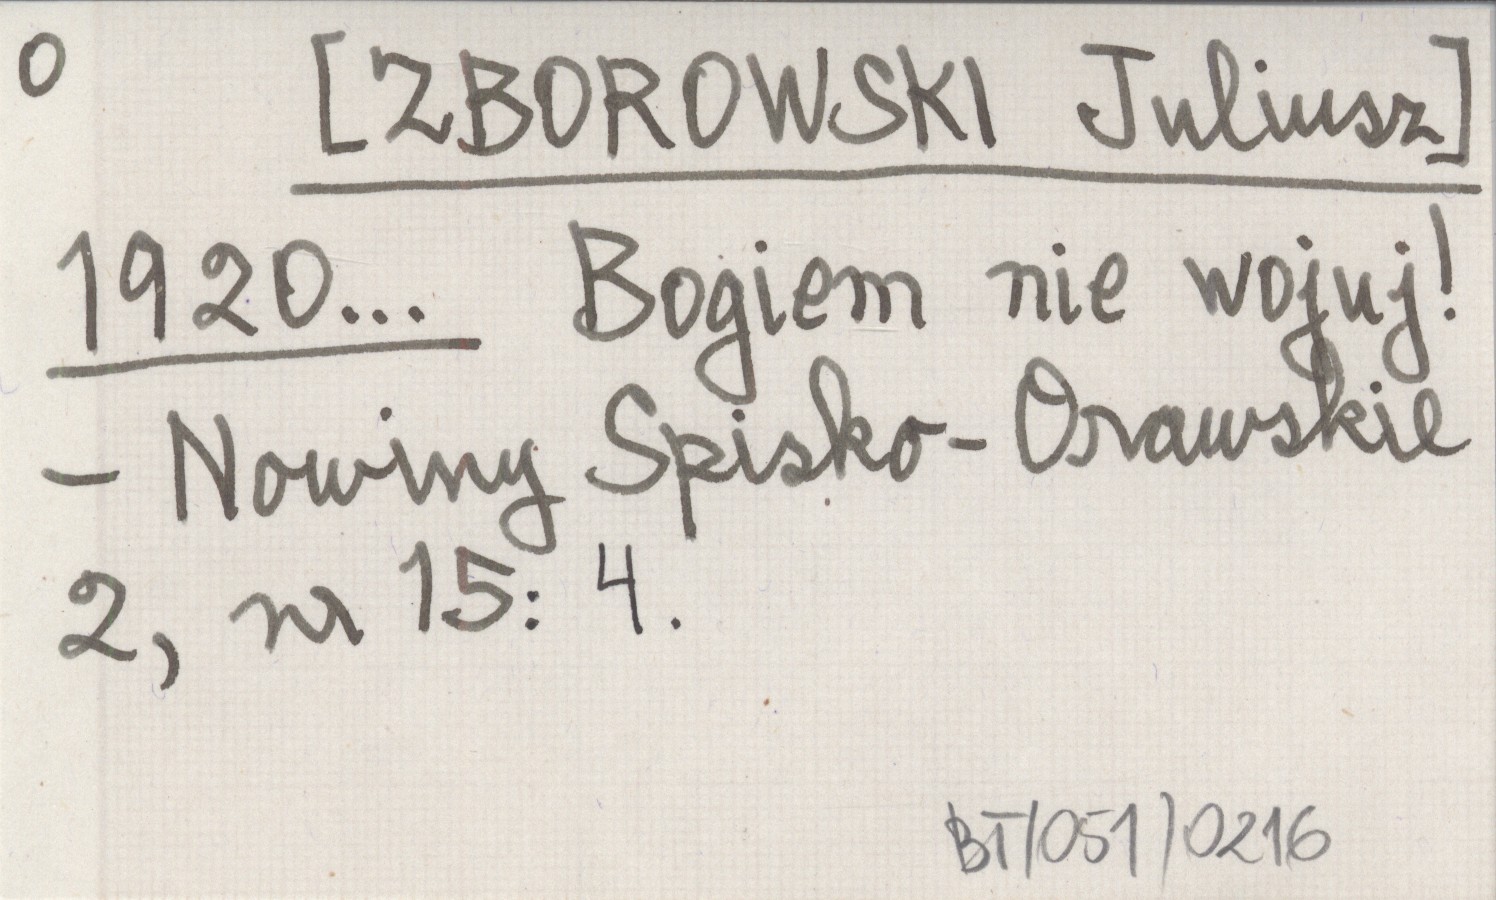 0 [ZBOROWSKI Juliusz]
1920... Bogiem nie wojuj!
- Nowiny Spisko-Orawskie
2, nr 15: 4.
BT/051/0216